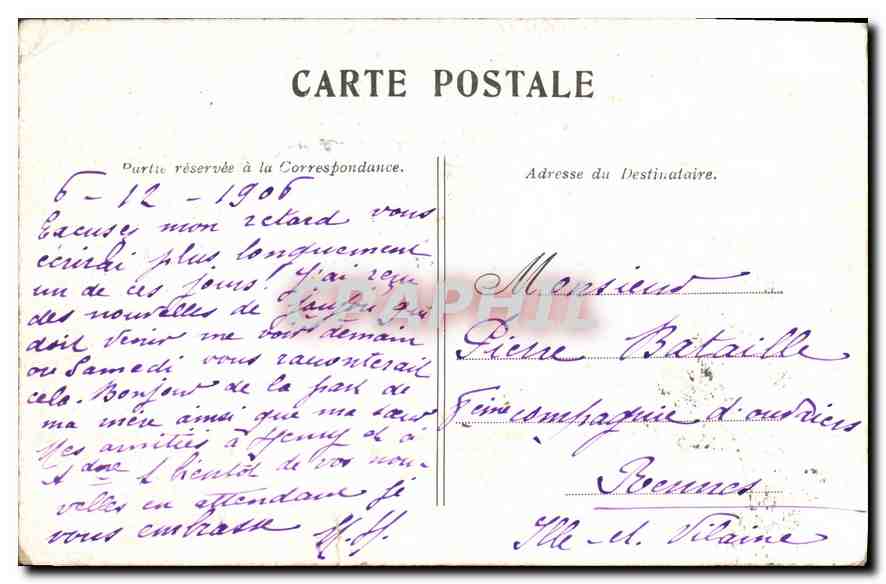 CARTE POSTALE
Partie réservée à la Correspondance.
Adresse du Destinataire.
6 - 12 - 1906
Excusez mon retard vous
écrirai plus longuement
un de ces jours! J'ai reçu
des nouvelles de qui
doit venir me voir demain
ou Samedi vous raconterai
cela. Bonjour de la part de
ma mère ainsi que ma sœur
Mes amitiés à Henry et à
A bientôt de vos nou-
velles en attendant je
vous embrasse
Monsieur
Pierre Bataille
8eme compagnie d'ouvriers
Rennes
Ille-et-Vilaine
CPAPHIL